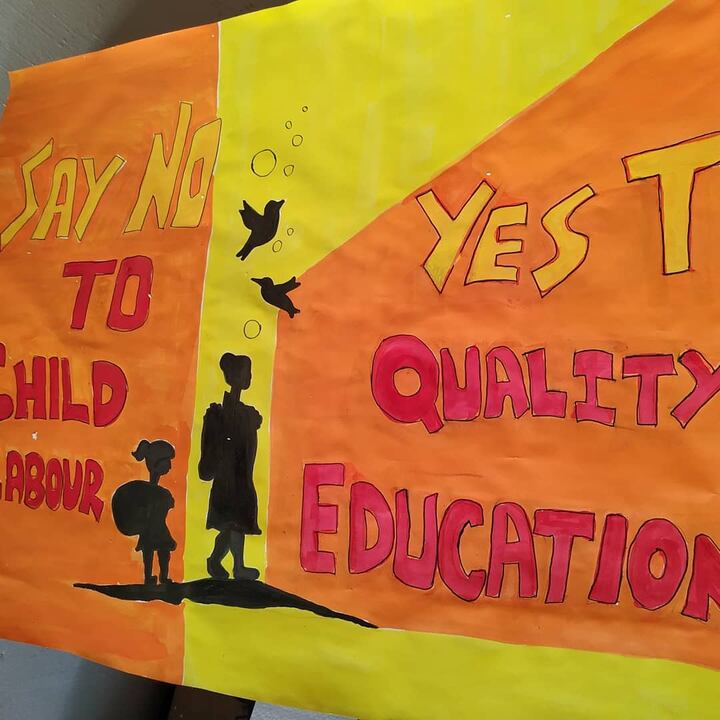 SAY NO
TO
CHILD
LABOUR
YES T
QUALITY
EDUCATION